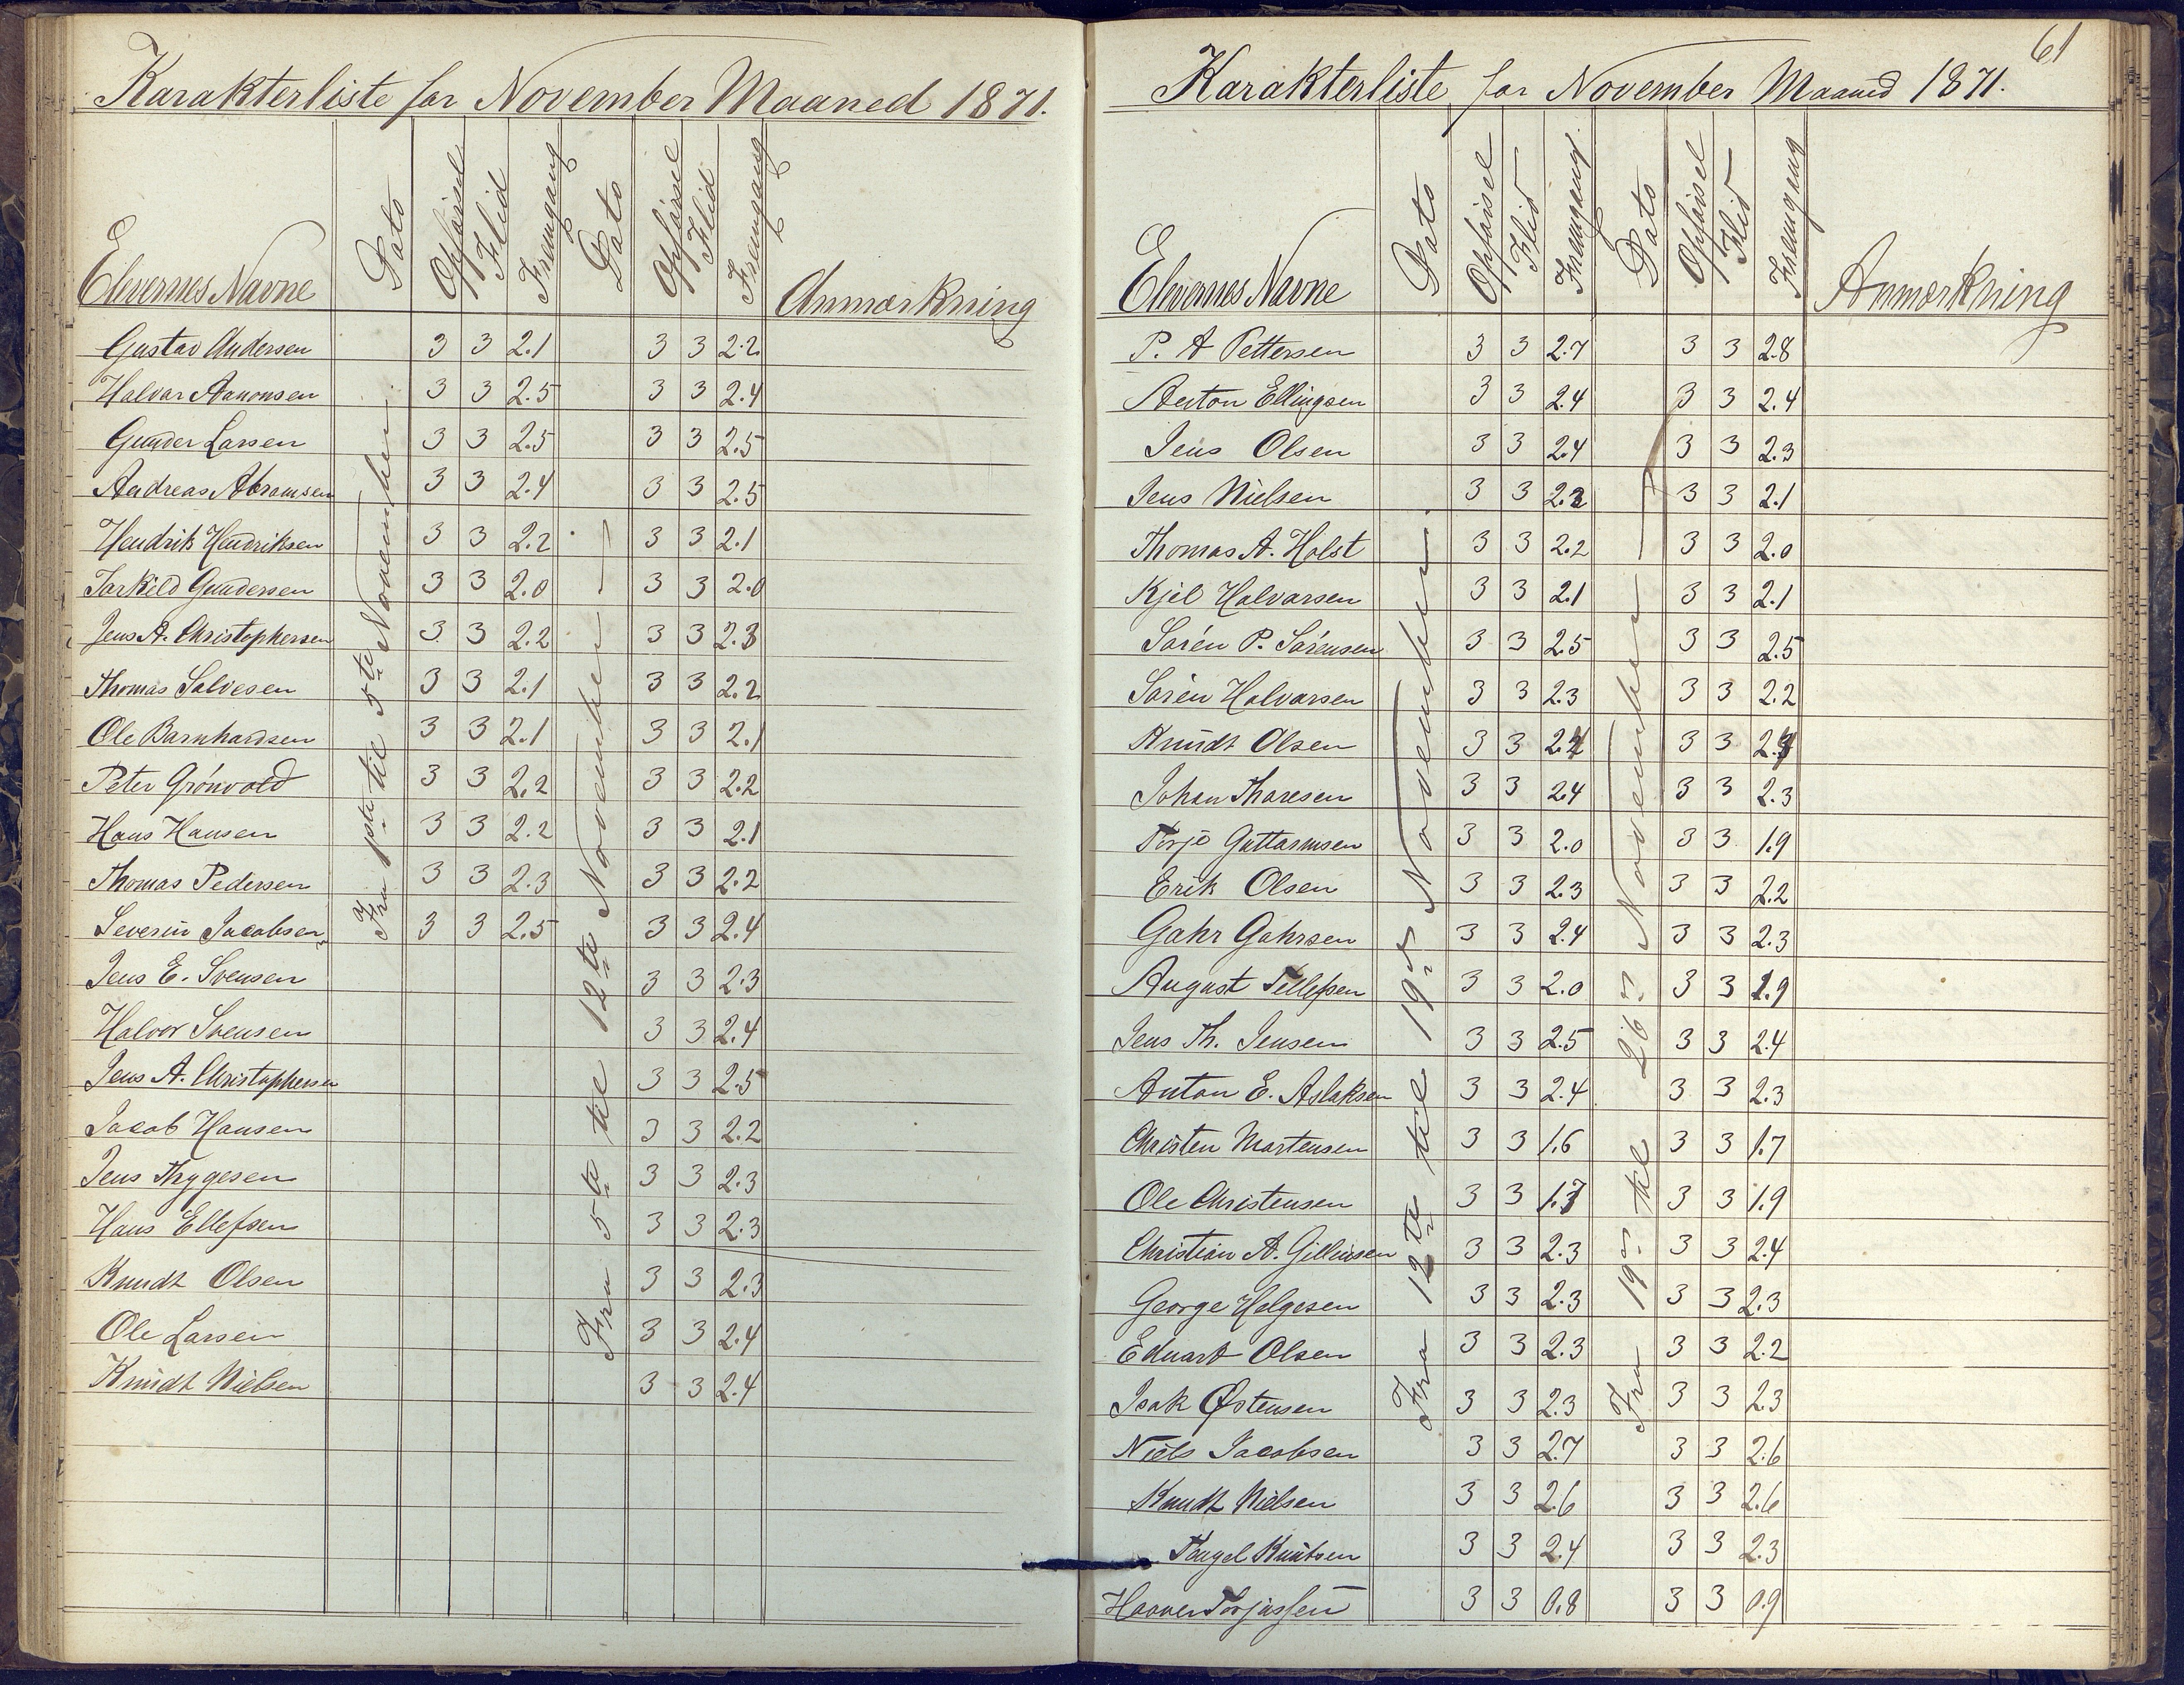 Karakterliste for November Maaned 1871.
Elevernes Navne Dato Opførsel Flid Fremgang Dato Opførsel Flid Fremgang Anmærkning
Fra 1ste til 5te November
Fra 5te til 12te November
Gustav Andersen 3 3 2.1 3 3 2.2
Halvor Aanonsen 3 3 2.5 3 3 2.4
Gunder Larsen 3 3 2.5 3 3 2.5
Andreas Abramsen 3 3 2.4 3 3 2.5
Hendrik Hendriksen 3 3 2.2 3 3 2.1
Torkild Gundersen 3 3 2.0 3 3 2.0
Jens A. Christophersen 3 3 2.2 3 3 2.3
Thomas Salvesen 3 3 2.1 3 3 2.2
Ole Barnhardsen 3 3 2.1 3 3 2.1
Peter Grönvold 3 3 2.2 3 3 2.2
Hans Hansen 3 3 2.2 3 3 2.1
Thomas Pedersen 3 3 2.3 3 3 2.2
Severin Jacobsen 3 3 2.5 3 3 2.4
Jens E. Svensen 3 3 2.3
Halvor Svensen 3 3 2.4
Jens A. Christophersen 3 3 2.5
Jacob Hansen 3 3 2.2
Jens Thygesen 3 3 2.3
Hans Ellefsen 3 3 2.3
Knudt Olsen 3 3 2.3
Ole Larsen 3 3 2.4
Knudt Nielsen 3 3 2.4
61
Karakterliste for November Maaned 1871.
Elevernes Navne Dato Opførsel Flid Fremgang. Dato Opførsel Flid Fremgang Anmærkning
Fra 12te til 19de November.
Fra 19de til 26de November
P. A Pettersen 3 3 2.7 3 3 2.8
Anton Ellingsen 3 3 2.4 3 3 2.4
Jens Olsen 3 3 2.4 3 3 2.3
Jens Nielsen 3 3 2.2 3 3 2.1
Thomas A. Holst 3 3 2.2 3 3 2.0
Kjel Halvorsen 3 3 2.1 3 3 2.1
Sören P. Sörensen 3 3 2.5 3 3 2.5
Sören Halvorsen 3 3 2.3 3 3 2.2
Knudt Olsen 3 3 2.4 3 3
Johan Thoresen 3 3 2.4 3 3 2.3
Terje Guttormsen 3 3 2.0 3 3 1.9
Erik Olsen 3 3 2.3 3 3 2.2
Gahr Gahrsen 3 3 2.4 3 3 2.3
August Tellefsen 3 3 2.0 3 3 1.9
Jens Th. Jensen 3 3 2.5 3 3 2.4
Anton E. Aslaksen 3 3 2.4 3 3 2.3
Christen Mortensen 3 3 1.6 3 3 1.7
Ole Christensen 3 3 1.7 3 3 1.9
Christian A. 3 3 2.3 3 3 2.4
George Helgesen 3 3 2.3 3 3 2.3
Eduart Olsen 3 3 2.3 3 3 2.2
Isak Østensen 3 3 2.3 3 3 2.3
Niels Jacobsen 3 3 2.7 3 3 2.6
Knudt Nielsen 3 3 2.6 3 3 2.6
Tengel Knutsen 3 3 2.4 3 3 2.3
Haaver Torjussen 3 3 0.8 3 3 0.9